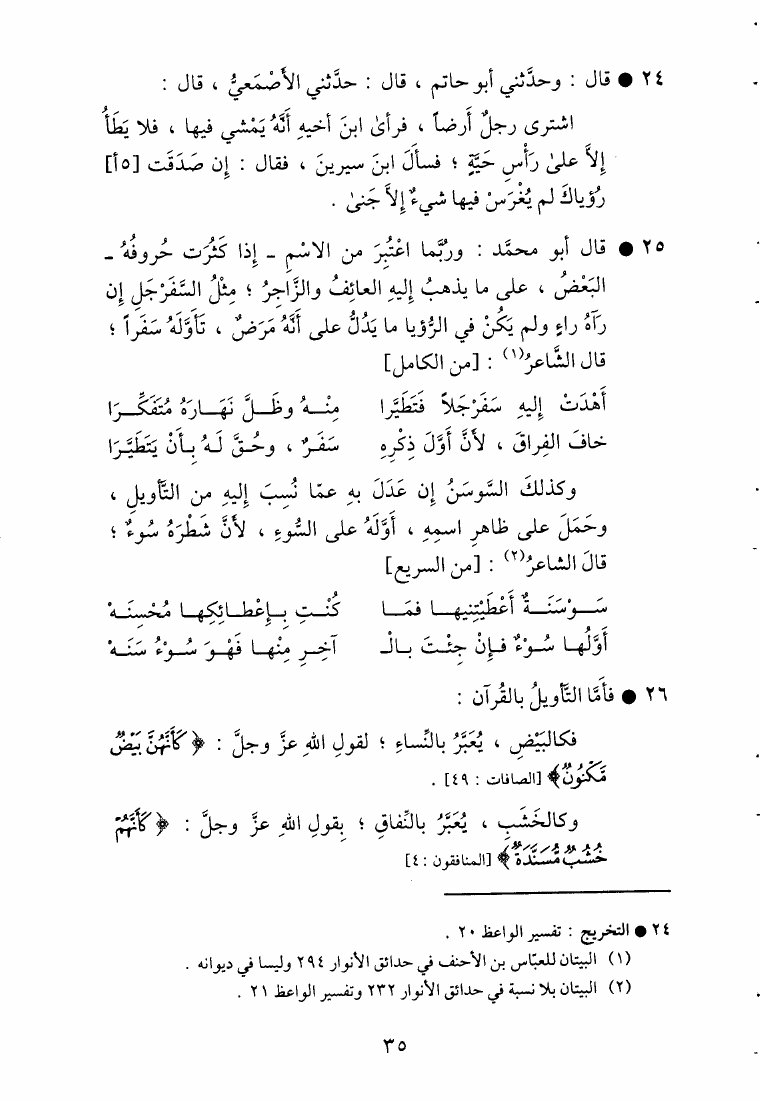 ٢٤ ● قال : وحدَّثني أبو حاتم ، قال : حدَّثني الأَصْمَعيُّ ، قال :
اشترى رجلٌ أَرضاً ، فرأىٰ ابنَ أخيهِ أنَّهُ يَمْشي فيها ، فلا يَطَأُ
إلاَّ علىٰ رَأْسِ حَيَّةٍ ؛ فسألَ ابنَ سيرينَ ، فقال : إن صَدَقَت [٥أ]
رُؤياكَ لم يُغْرَسْ فيها شيءٌ إلاَّ جَنىٰ .
٢٥ ● قال أبو محمَّد : ورُبَّما اعْتُبِرَ من الاسْمِ ـ إذا كَثُرَت حُروفُهُ ـ
البَعْضُ ، على ما يذهبُ إليهِ العائِفُ والزَّاجِرُ ؛ مِثْلُ السَّفَرْجَلِ إن
رَآهُ راءٍ ولم يَكُنْ في الرُّؤيا ما يَدُلُّ على أَنَّهُ مَرَضٌ ، تَأوَّلَهُ سَفَراً ؛
قال الشَّاعرُ(١) : [من الكامل]
أَهْدَتْ إليهِ سَفَرْجَلاً فَتَطَيَّرا مِنْـهُ وظَـلَّ نَهَـارَهُ مُتَفَكِّـرَا
خافَ الفِراقَ ، لأنَّ أوَّلَ ذِكْرِهِ سَفَرٌ ، وحُقَّ لَهُ بِأنْ يَتَطَيَّرَا
وكذلكَ السَّوسَنُ إن عَدَلَ بهِ عمّا نُسِبَ إليهِ من التَّأويلِ ،
وحَمَلَ على ظاهرِ اسمِهِ ، أوَّلَهُ على السُّوءِ ، لأنَّ شَطْرَهُ سُوءٌ ؛
قالَ الشاعرُ(٢) : [من السريع]
سَـوْسَنَـةٌ أَعْطَيْتِنيهـا فمَـا كُنْـتِ بـإِعْطـائِكِهـا مُحْسِنَـهْ
أوَّلُهـا سُـوْءٌ فـإنْ جِئْـتَ بـالْـ آخِـرِ مِنْهـا فَهْـوَ سُـوْءُ سَنَـهْ
٢٦ ● فأمَّا التَّأويلُ بالقُرآن :
فكالبَيْضِ ، يُعَبَّرُ بالنِّساءِ ؛ لقولِ اللهِ عزَّ وجلَّ : ﴿ كَأَنَّهُنَّ بَيْضٌ
مَّكْنُونٌ﴾ [الصافات : ٤٩] .
وكالخَشَبِ ، يُعَبَّرُ بالنِّفاقِ ؛ بقولِ اللهِ عزَّ وجلَّ : ﴿ كَأَنَّهُمْ
خُشُبٌ مُّسَنَّدَةٌ ﴾ [المنافقون : ٤]
٢٤ ● التخريج : تفسير الواعظ ٢٠ .
(١) البيتان للعبّاس بن الأحنف في حدائق الأنوار ٢٩٤ وليسا في ديوانه .
(٢) البيتان بلا نسبة في حدائق الأنوار ٢٣٢ وتفسير الواعظ ٢١ .
٣٥